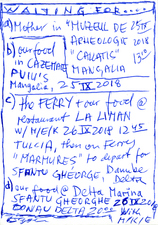 WAITING FOR....
a) Mother in "MUZEUL DE 25 IX
ARHEOLOGIE 2018
"CALLATIS" 13:00
MANGALIA
b) our food
in CAZEMATE
PUIU'S
Mangalia, 25 IX 2018
c) the FERRY + our food @
restaurant LA LIMAN
W/M/E/K 26 IX 2018 12 45
TULCIA, then on Ferry
"MARMURES" to depart for
SFANTU GHEORGE, Danube
Delta
d) our food @ Delta Marina
SFANTU GHEORGHE 26 IX 2018
DONAU DELTA 20:00 W/K
M/K/E